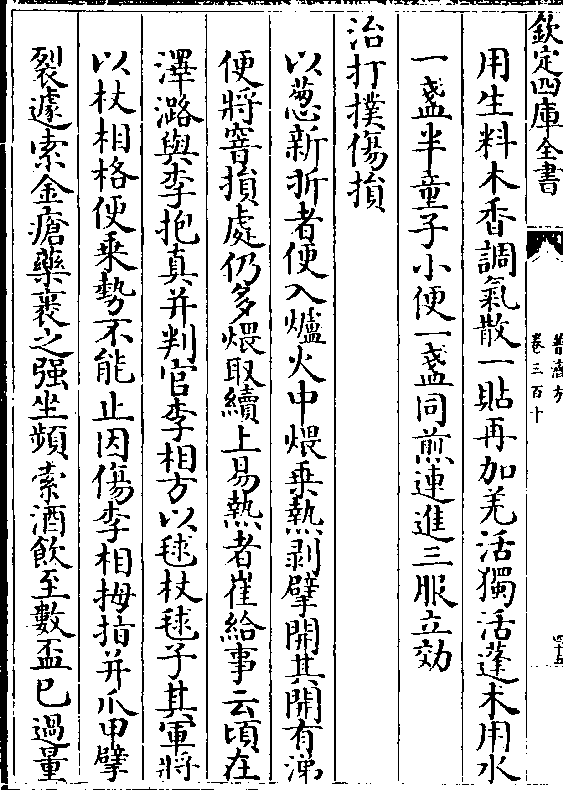 欽定四庫全書
普濟方
卷三百十
用生料木香調氣散一貼再加羌活獨活蓬术用水
一盞半童子小便一盞同煎連進三服立効
治打撲傷損
以葱新折者便入爐火中煨乗熱剥擘開其開有涕
便將罯損處仍多煨取續上易熱者崔給事云頃在
澤潞與李抱真并判官李相方以毬杖毬子其軍將
以杖相格便乗勢不能止因傷李相拇指并爪甲擘
裂遽索金瘡藥裹之强坐頻索酒飲至數盃已過量